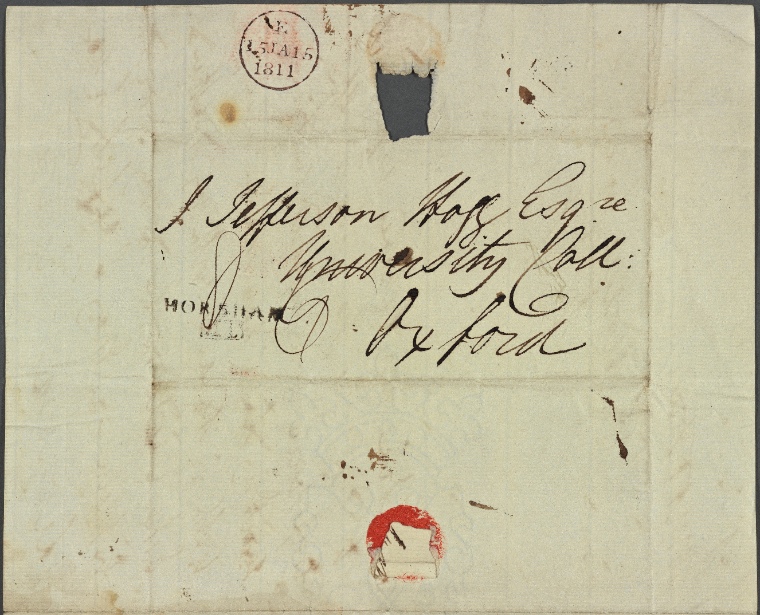 E
15 JA 15
1811
J. Jefferson Hogg Esqre
University Coll:
Oxford
HORSHAM